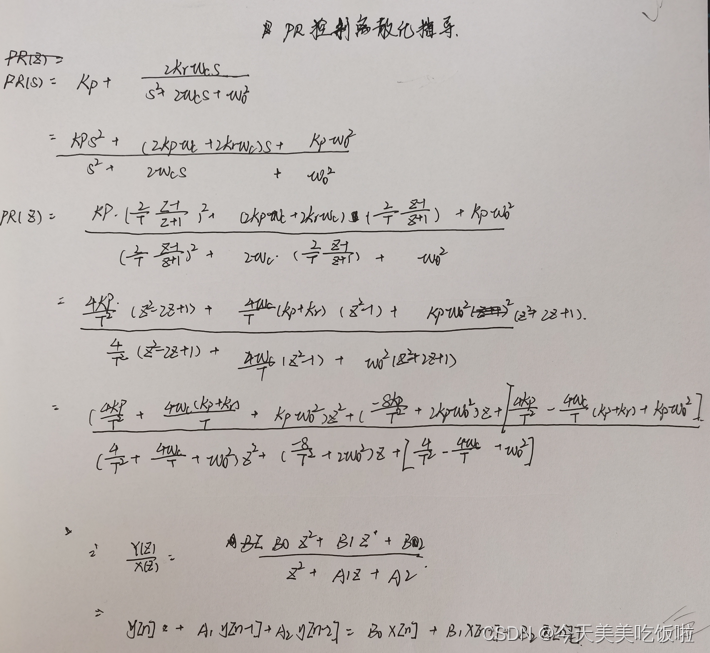 PR控制离散化推导.
PR(Z)=
PR(S) = Kp + 2krwcs / (s²+2wcs+w₀²)
= (KPs² + (2kpwc+2krwc)s + Kpw₀²) / (s² + 2wcs + w₀²)
PR(Z) = (KP·(2/T z-1/z+1)² + (2kpwc+2krwc)·(2/T z-1/z+1) + Kpw₀²) / ((2/T z-1/z+1)² + 2wc·(2/T z-1/z+1) + w₀²)
= (4KP/T² (z²-2z+1) + 4wc/T (kp+kr) (z²-1) + kpw₀² (z²+2z+1).) / (4/T² (z²-2z+1) + 4wc/T (z²-1) + w₀²(z²+2z+1))
= ((4KP/T² + 4wc(kp+kr)/T + kpw₀²)z² + (-8kp/T² + 2kpw₀²)z + [4kp/T² - 4wc/T (kp+kr) + kpw₀²]) / ((4/T² + 4wc/T + w₀²)z² + (-8/T² + 2w₀²)z + [4/T² - 4wc/T + w₀²])
Y(Z)/X(Z) = (B0 Z² + B1 Z + B2) / (Z² + A1Z + A2)
=
Y[n] + A₁ y[n-1] + A₂ y[n-2] = B₀ X[n] + B₁ X[n-1] + B₂
CSDN @今天美美吃饭啦